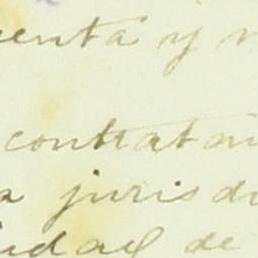 enta y n
contratan
a jurisdi
udad de